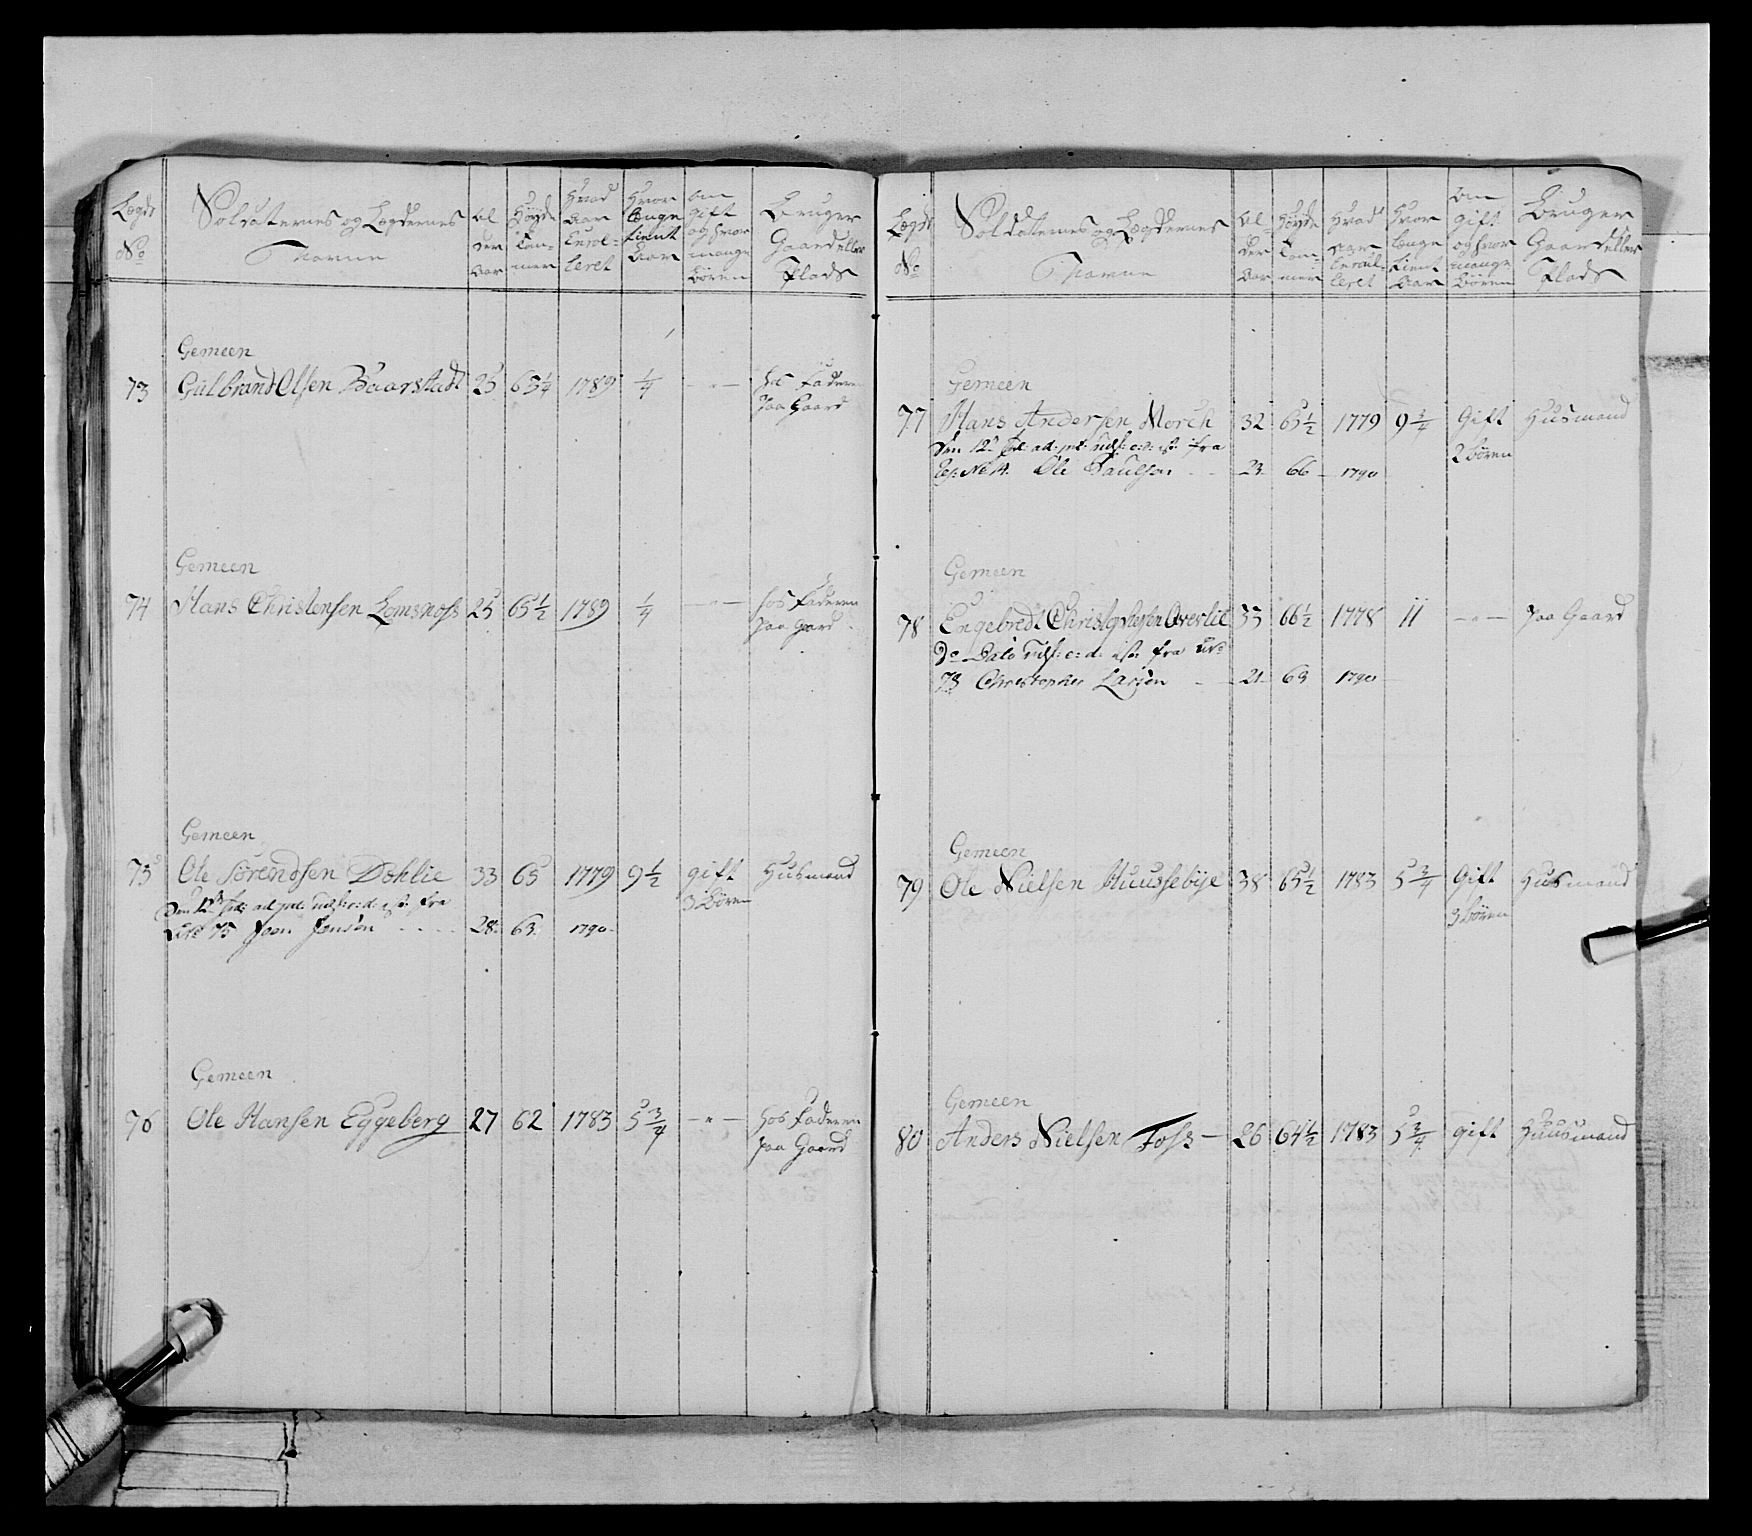 Lægds
No
Soldaternes og Lægdernes
Navne
Al
der
Aar
Høyde
Tom-
mer
Hvad
Aar
Enrol-
leret
Hvor
Længe
tient
Aar
Om
gift
og hvor
mange
Børen
Bruger
Gaard eller
Plads
Gemeen
73 Gulbrand Olsen Baarstadt 25 65 1/4 1789 1/4 — " — hos Faderen
paa Gaard
Gemeen
74 Hans Christensen Lomsnoss 25 65 1/2 1789 1/4 — " — hos Faderen
paa Gaard
Gemeen
75 Ole Sørendsen Dohlie 33 65 1779 9 1/2 gift Husmand
3 Børen
Den 12 fra
75 Joen Jensen 28 63 1790
Gemeen
76 Ole Hansen Eggeberg 27 62 1783 5 3/4 — " — hos Faderen
paa Gaard
Lægds
No
Soldaternes og Lægdernes
Navne
Al
der
Aar
Høyde
Tom-
mer
Hvad
Aar
Enroul-
leret
Hvor
Længe
tient
Aar
Om
gift
og hvor
mange
Børen
Bruger
Gaard eller
Plads
Gemeen
77 Hans Andersen Morch 32 65 1/2 1779 9 3/4 Gift Husmand
2 Børen
Den 12 fra
Ole Paulsen 23 66 1790
Gemeen
78 Engebredt Christophersen Overlie 33 66 1/2 1778 11 — " — paa Gaard
Do Dato fra No
78 Christopher Larsen 21 63 1790
Gemeen
79 Ole Nielsen Huussebÿe 38 65 1/2 1783 5 3/4 Gift Husmand
3 Børen
Gemeen
80 Anders Nielsen Foss 26 64 1/2 1783 5 3/4 gift Huusmand